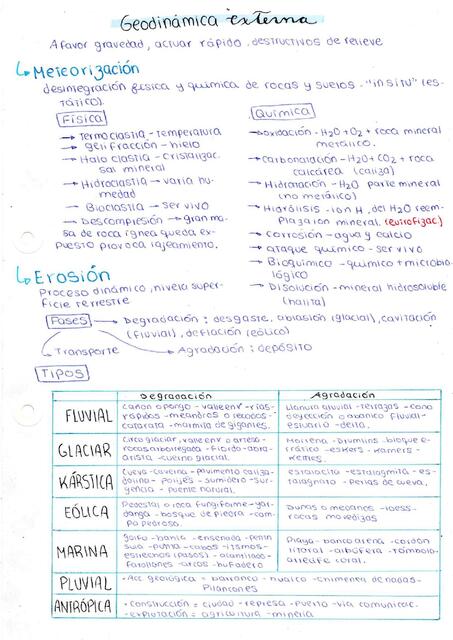 Geodinámica externa
A favor gravedad, actuar rápido, destructivos de relieve
Meteorización
desintegración física y química de rocas y suelos. "in situ" (es-
tático).
Física
Termoclastia - temperatura
gelifracción - hielo
Haloclastia - cristalizac.
sal mineral
Hidroclastia - varia hu-
medad
Bioclastia - ser vivo
Descompresión - gran ma-
sa de roca ígnea queda ex-
puesto provoca lajeamiento.
Química
oxidación - H2O + O2 + roca mineral
metálico.
Carbonatación - H2O + CO2 + roca
calcárea (caliza)
Hidratación - H2O parte mineral
(no metálico)
Hidrólisis - ion H, del H2O reem-
plaza ion mineral.
Corrosión - agua y calcio
Ataque químico - ser vivo
Bioquímico - químico + microbio-
lógico
Disolución - mineral hidrosoluble
(halita)
Erosión
Proceso dinámico, nivela super-
ficie terrestre
Fases
Degradación : desgaste, ablasión (glacial), cavitación
(fluvial), deflación (eólico)
Transporte
Agradación : depósito
TIPOS
Degradación Agradación
FLUVIAL
Cañón o pongo - valle en V - rías -
rápidos - meandros o recodos -
catarata - marmita de gigantes.
Llanura aluvial - terrazas - cono
deyección o abanico fluvial -
estuario - delta.
GLACIAR
Circo glaciar, valle en U o artesa -
rocas aborregada - Fiordo -
arista - cuerno glacial.
Morrena - Drumlins - bloque e-
rrático - eskers - kamers -
kettles.
KÁRSTICA
Cueva - caverna - pavimento caliza-
dolina - poljes - sumidero - sur-
gencia - puente natural.
estalactita - estalagmita - es-
talagnato - perlas de cueva.
EÓLICA
Pedestal o roca fungiforme - yar-
danga - bosque de piedra - cam-
po pedroso.
Dunas o médanos - loess -
rocas movedizas
MARINA
Golfo - bahía - ensenada - penín
sula - punta - cabos - itsmos -
estrechos (pasos) - acantilado -
farallones - arcos - bufadero
Playa - banco arena - cordón
litoral - albúfera - tómbolo -
arrecife coral.
PLUVIAL
Acc geológica = barranco - huaico - chimenea de hadas -
Pilancones
ANTRÓPICA
construcción = ciudad - represa - puerto - vía comunicac.
explotación = agricultura - minería